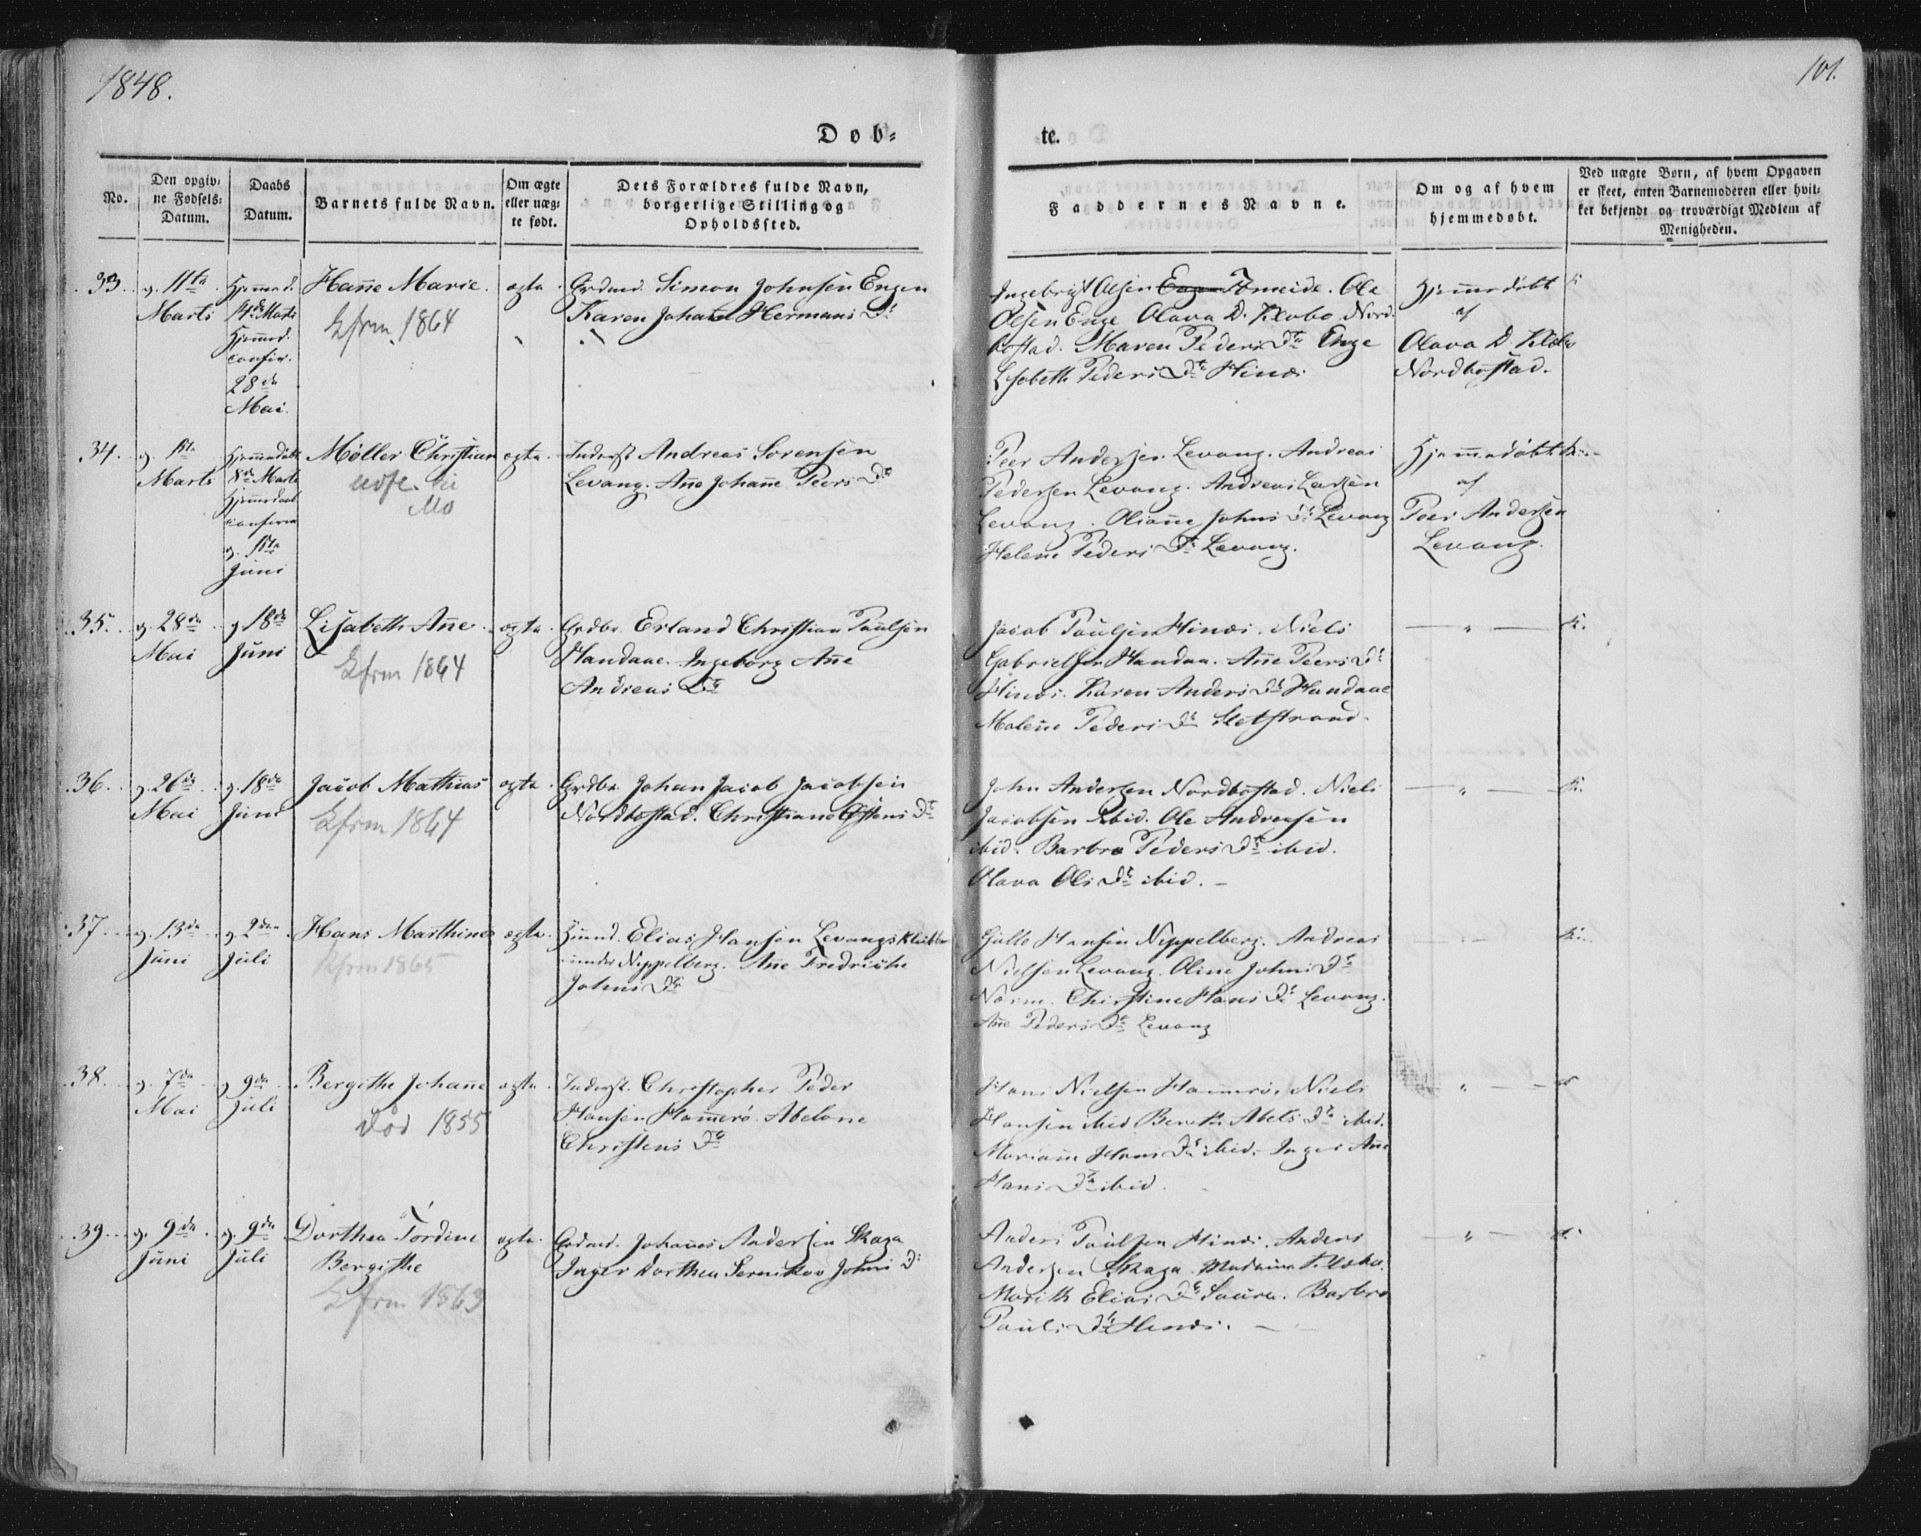 1848.
101.
Døb-
te.
No.
Den opgiv-
ne Fødsels-
Datum.
Daabs
Datum.
Barnets fulde Navn.
Om ægte
eller uæg-
te født.
Dets Forældres fulde Navn,
borgerlige Stilling og
Opholdssted.
Faddernes Navne.
Om og af hvem
hjemmedøbt.
Ved uægte Børn, af hvem Opgaven
er skeet, enten Barnemoderen eller hvil-
ket bekjendt og troværdigt Medlem af
Menigheden.
33. 11te
Marts
Hjemmed.
14de Marts
Hjemmed.
confir.
28de
Mai.
Hanne Marie.
Kfrm. 1864
ægte
Simon Johnsen Engen
Karen Johanne Hermans Dr
Ingebrigt Olsen Engen Tømeide. Ole
Olsen Enge Olava D. Klæbo Nord-
bostad. Maren Peders Dtr Enge
Lisabeth Peders Dtr Hinæs
Hjemmedøbt
af
Olava D Klæbo
Nordbostad.
34.
Marts
Hjemmedøbt
8de Marts
confirm
Juni
Møller Christian
Mo
ægte.
Inderst Andreas Sørensen
Levang. Ane Johanne Peers Dtr
Peer Andersen Levang. Andreas
Pedersen Levang. Andreas Larsen
Levang. Oliane Johns Dtr Levang
Helene Peders Dtr Levang.
Hjemmedøbt
af
Peer Andersen
Levang.
35. 28de
Mai
18de
Juni
Lisabeth Ane
Kfrm 1864
ægte
Grdbr. Erland Christian Paulsen
Handaae. Ingeborg Ane
Andreas Dtr
Jacob Paulsen Hinæs. Niels
Gabrielsen Handaa. Ane Peers Dr
Hinæs. Karen Anders Dtr Handaae
Malene Peders Dtr Sletstrand.
36. 26de
Mai
18de
Juni
Jacob Mathias
Kfrm 1864
ægte
Grdbr. Johan Jacob Jacobsen
Nordbostad. Christiane Østens Dtr
John Andersen Nordbostad. Niels
Jacobsen ibid. Ole Andreasen
ibid. Barbro Peders Dtr ibid.
Olava Ols Dtr ibid. -
37 13de
Juni
2den
Juli
Hans Marthines
Kfrm 1865
ægte.
Elias Hansen Levangs
under Neppelberg. Ane Fredrikke
Johns Dtr
Hansen Neppelberg. Andreas
Nielsen Levang. Oline Johns Dtr
Christine Hans Dtr Levang.
Ane Peders Dtr Levang
38. 7de
Mai
9de
Juli
Bergithe Johanne
Død 1855
ægte
Inderst. Christopher Peder
Hansen Hammerø. Abelone
Christens Dtr
Hans Nielsen Hammerø. Niels
Hansen ibid Abels Dtr ibid.
Mariane Hans Dtr ibid. Inger Ane
Hans Dtr ibid.
39. 9de
Juni
9de
Juli
Dorthea Tordine
Bergithe
Kfrm 1863
ægte.
Johannes Andersen Skaga
Inger Dorthea Johns D.
Anders Paulsen Hinæs. Anders
Andersen Skaga.
Marith Elias Dtr Saura. Barbro
Pauls Dtr Hinæs.